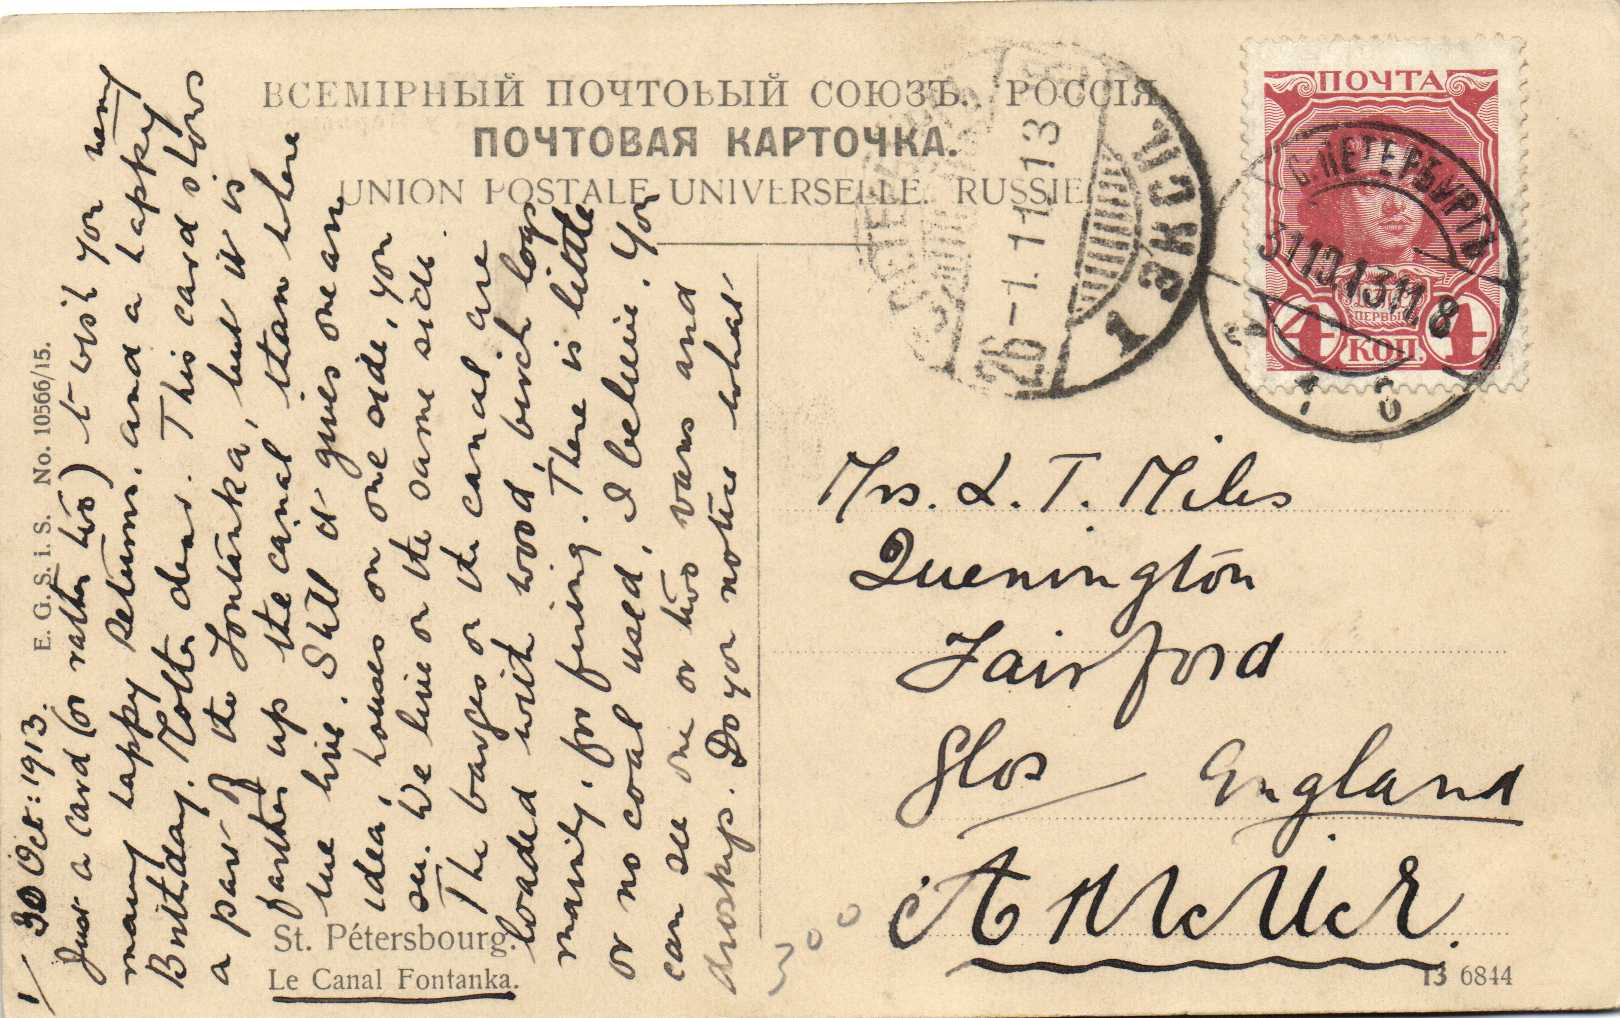 ВСЕМІРНЫЙ ПОЧТОВЫЙ СОЮЗЪ. РОССІЯ
ПОЧТОВАЯ КАРТОЧКА.
UNION POSTALE UNIVERSELLE. RUSSIE
ПОЧТА
4 КОП. 4
С.ПЕТЕРБУРГЪ
31 10.13 11. 8
26-1.11.13
1 ЭКСП
E. G. S. i. S. No. 10566/15.
1/ 30 Oct: 1913.
Just a card (or rather two) to wish you many
many happy Returns. and a happy
Birthday. Mother dear. This card shows
a part of the Fontanka, but it is
farther up the canal than where
we live. Still it gives one an
idea, houses on one side, you
see. We live on the same side.
The barges on the canal are
loaded with wood, birch logs
mainly, for firing. There is little
or no coal used, I believe. You
can see one or two vans and
droskys. Do you notice what
St. Pétersbourg.
Le Canal Fontanka.
Mrs. L. T. Miles
Quenington
Fairford
Glos England
АНГЛІЯ.
300
13 6844